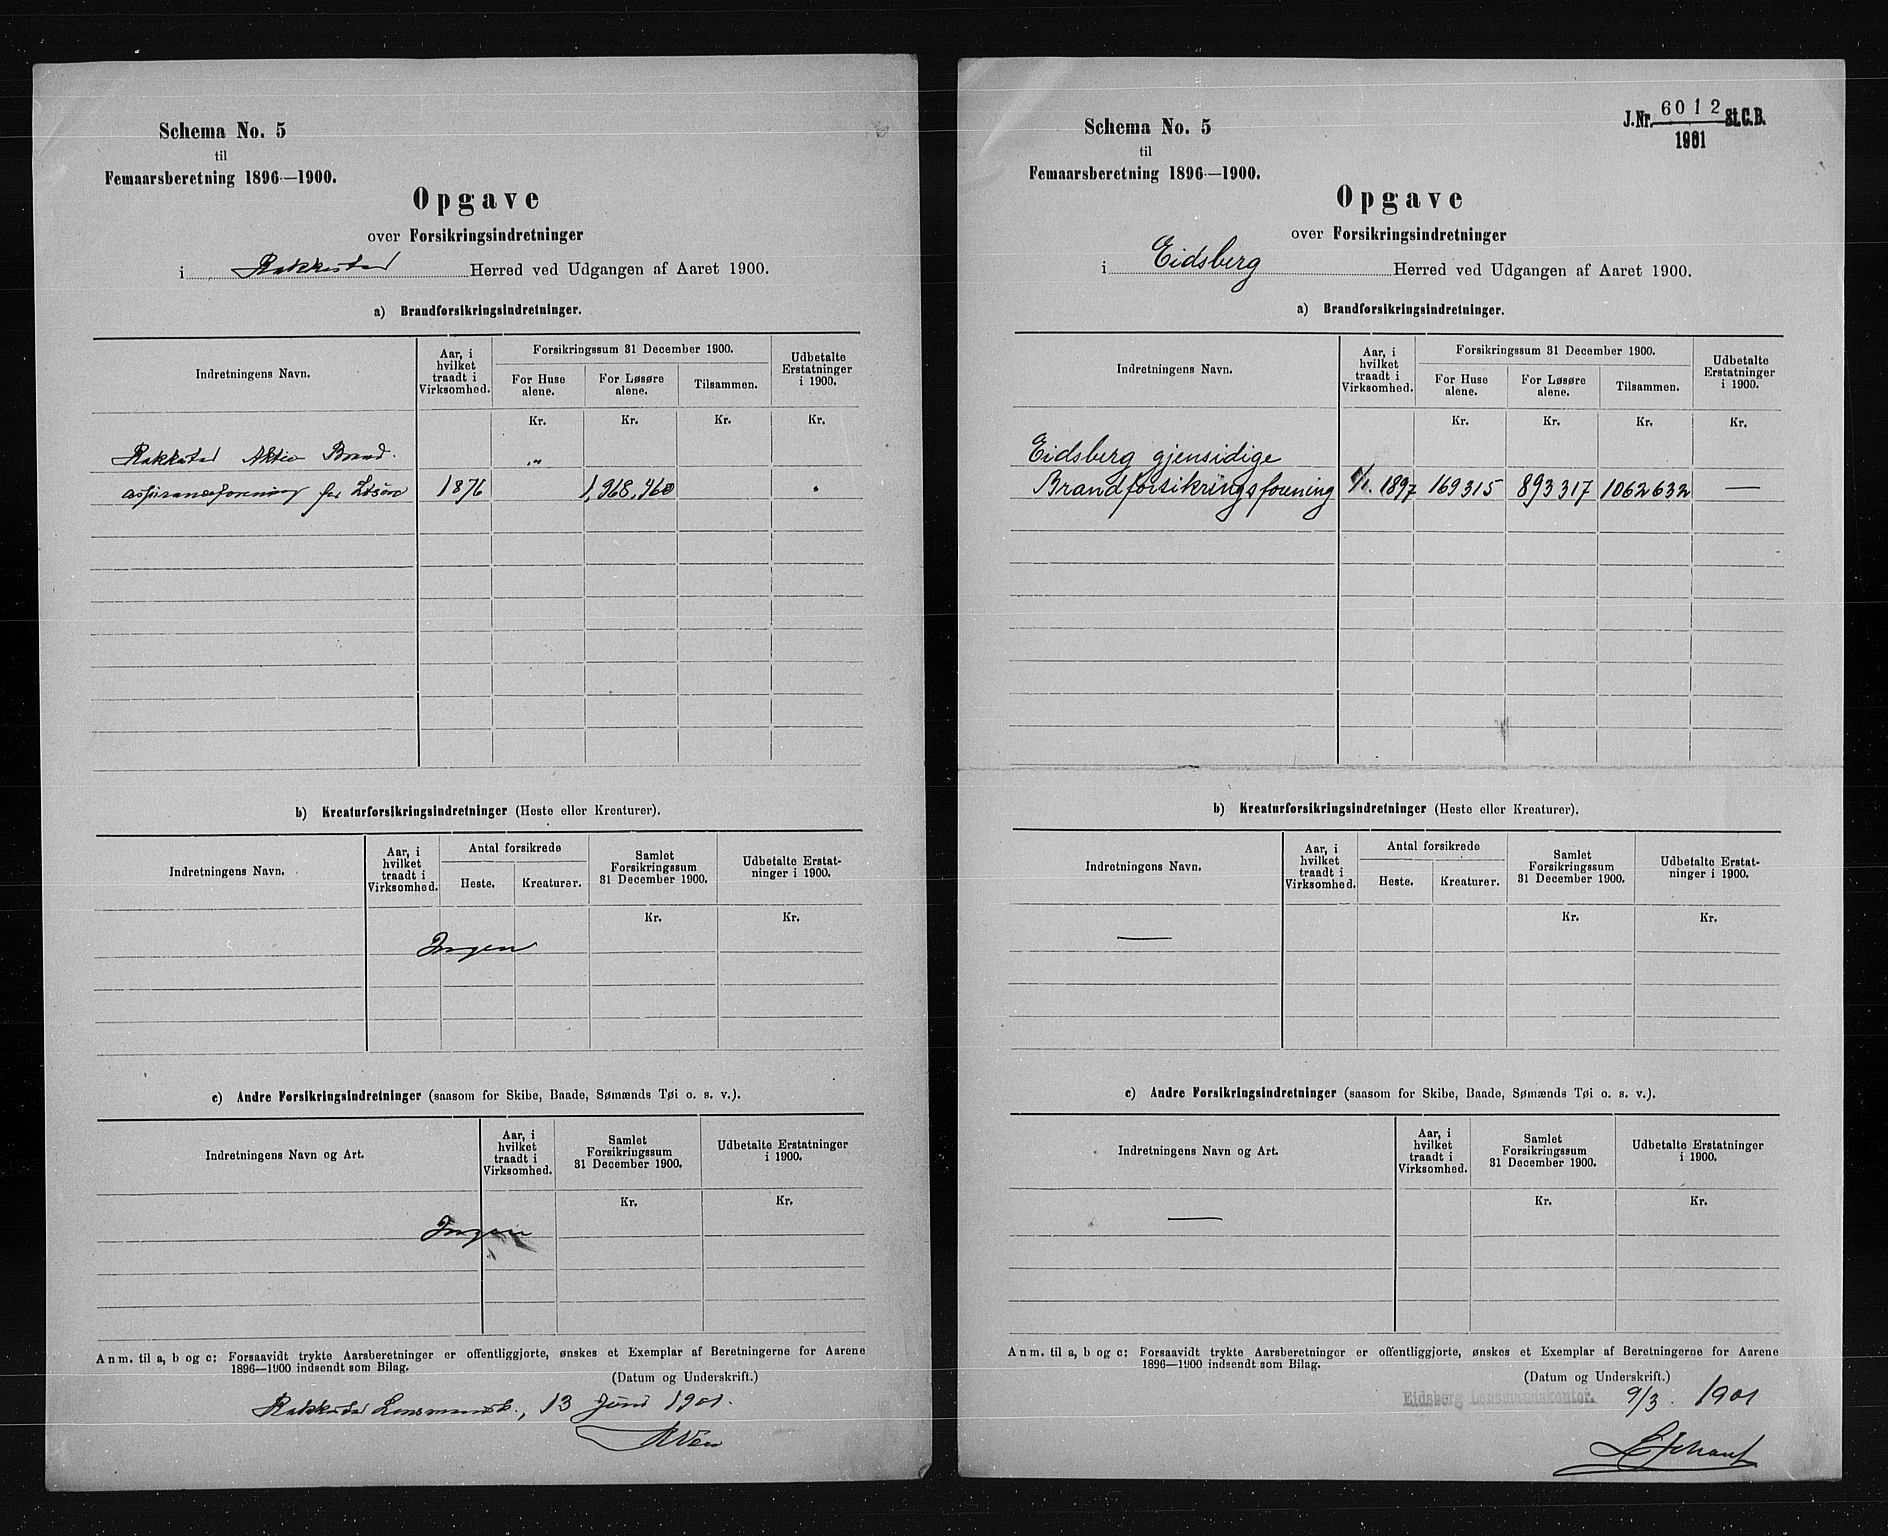 Schema No. 5
til
Femaarsberetning 1896—1900.
Opgave
over Forsikringsindretninger
i Rakkestad Herred ved Udgangen af Aaret 1900.
a) Brandforsikringsindretninger.
Indretningens Navn.
Aar, i
hvilket
traadt i
Virksomhed.
Forsikringssum 31 December 1900.
For Huse
alene.
For Løsøre
alene.
Tilsammen.
Udbetalte
Erstatninger
i 1900.
Kr. Kr. Kr. Kr.
Rakkestad Aktie Brand- „
assuranceforening for Løsøre 1876 1,968,460
b) Kreaturforsikringsindretninger (Heste eller Kreaturer).
Indretningens Navn.
Aar, i
hvilket
traadt i
Virksomhed.
Antal forsikrede
Heste. Kreaturer.
Samlet
Forsikringssum
31 December 1900.
Udbetalte Erstat-
ninger i 1900.
Kr. Kr.
Ingen
c) Andre Forsikringsindretninger (saasom for Skibe, Baade, Sømænds Tøi o. s. v.).
Indretningens Navn og Art.
Aar, i
hvilket
traadt i
Virksomhed.
Samlet
Forsikringssum
31 December 1900.
Udbetalte Erstatninger
i 1900.
Kr. Kr.
Ingen
Anm. til a, b og c: Forsaavidt trykte Aarsberetninger er offentliggjorte, ønskes et Exemplar af Beretningerne for Aarene
1896—1900 indsendt som Bilag.
(Datum og Underskrift.)
Rakkestad Lensmandsk., 13 Juni 1901.
J. Nr. 6012 St. C. B.
1901
Schema No. 5
til
Femaarsberetning 1896—1900.
Opgave
over Forsikringsindretninger
i Eidsberg Herred ved Udgangen af Aaret 1900.
a) Brandforsikringsindretninger.
Indretningens Navn.
Aar, i
hvilket
traadt i
Virksomhed.
Forsikringssum 31 December 1900.
For Huse
alene.
For Løsøre
alene.
Tilsammen.
Udbetalte
Erstatninger
i 1900.
Kr. Kr. Kr. Kr.
Eidsberg gjensidige
Brandforsikringsforening 1/1. 1897 169315 893317 1062632 —
b) Kreaturforsikringsindretninger (Heste eller Kreaturer).
Indretningens Navn.
Aar, i
hvilket
traadt i
Virksomhed.
Antal forsikrede
Heste. Kreaturer.
Samlet
Forsikringssum
31 December 1900.
Udbetalte Erstat-
ninger i 1900.
Kr. Kr.
—
c) Andre Forsikringsindretninger (saasom for Skibe, Baade, Sømænds Tøi o. s. v.).
Indretningens Navn og Art.
Aar, i
hvilket
traadt i
Virksomhed.
Samlet
Forsikringssum
31 December 1900.
Udbetalte Erstatninger
i 1900.
Kr. Kr.
—
Anm. til a, b og c: Forsaavidt trykte Aarsberetninger er offentliggjorte, ønskes et Exemplar af Beretningerne for Aarene
1896—1900 indsendt som Bilag.
(Datum og Underskrift.)
Eidsberg Lensmandskontor. 9/3. 1901